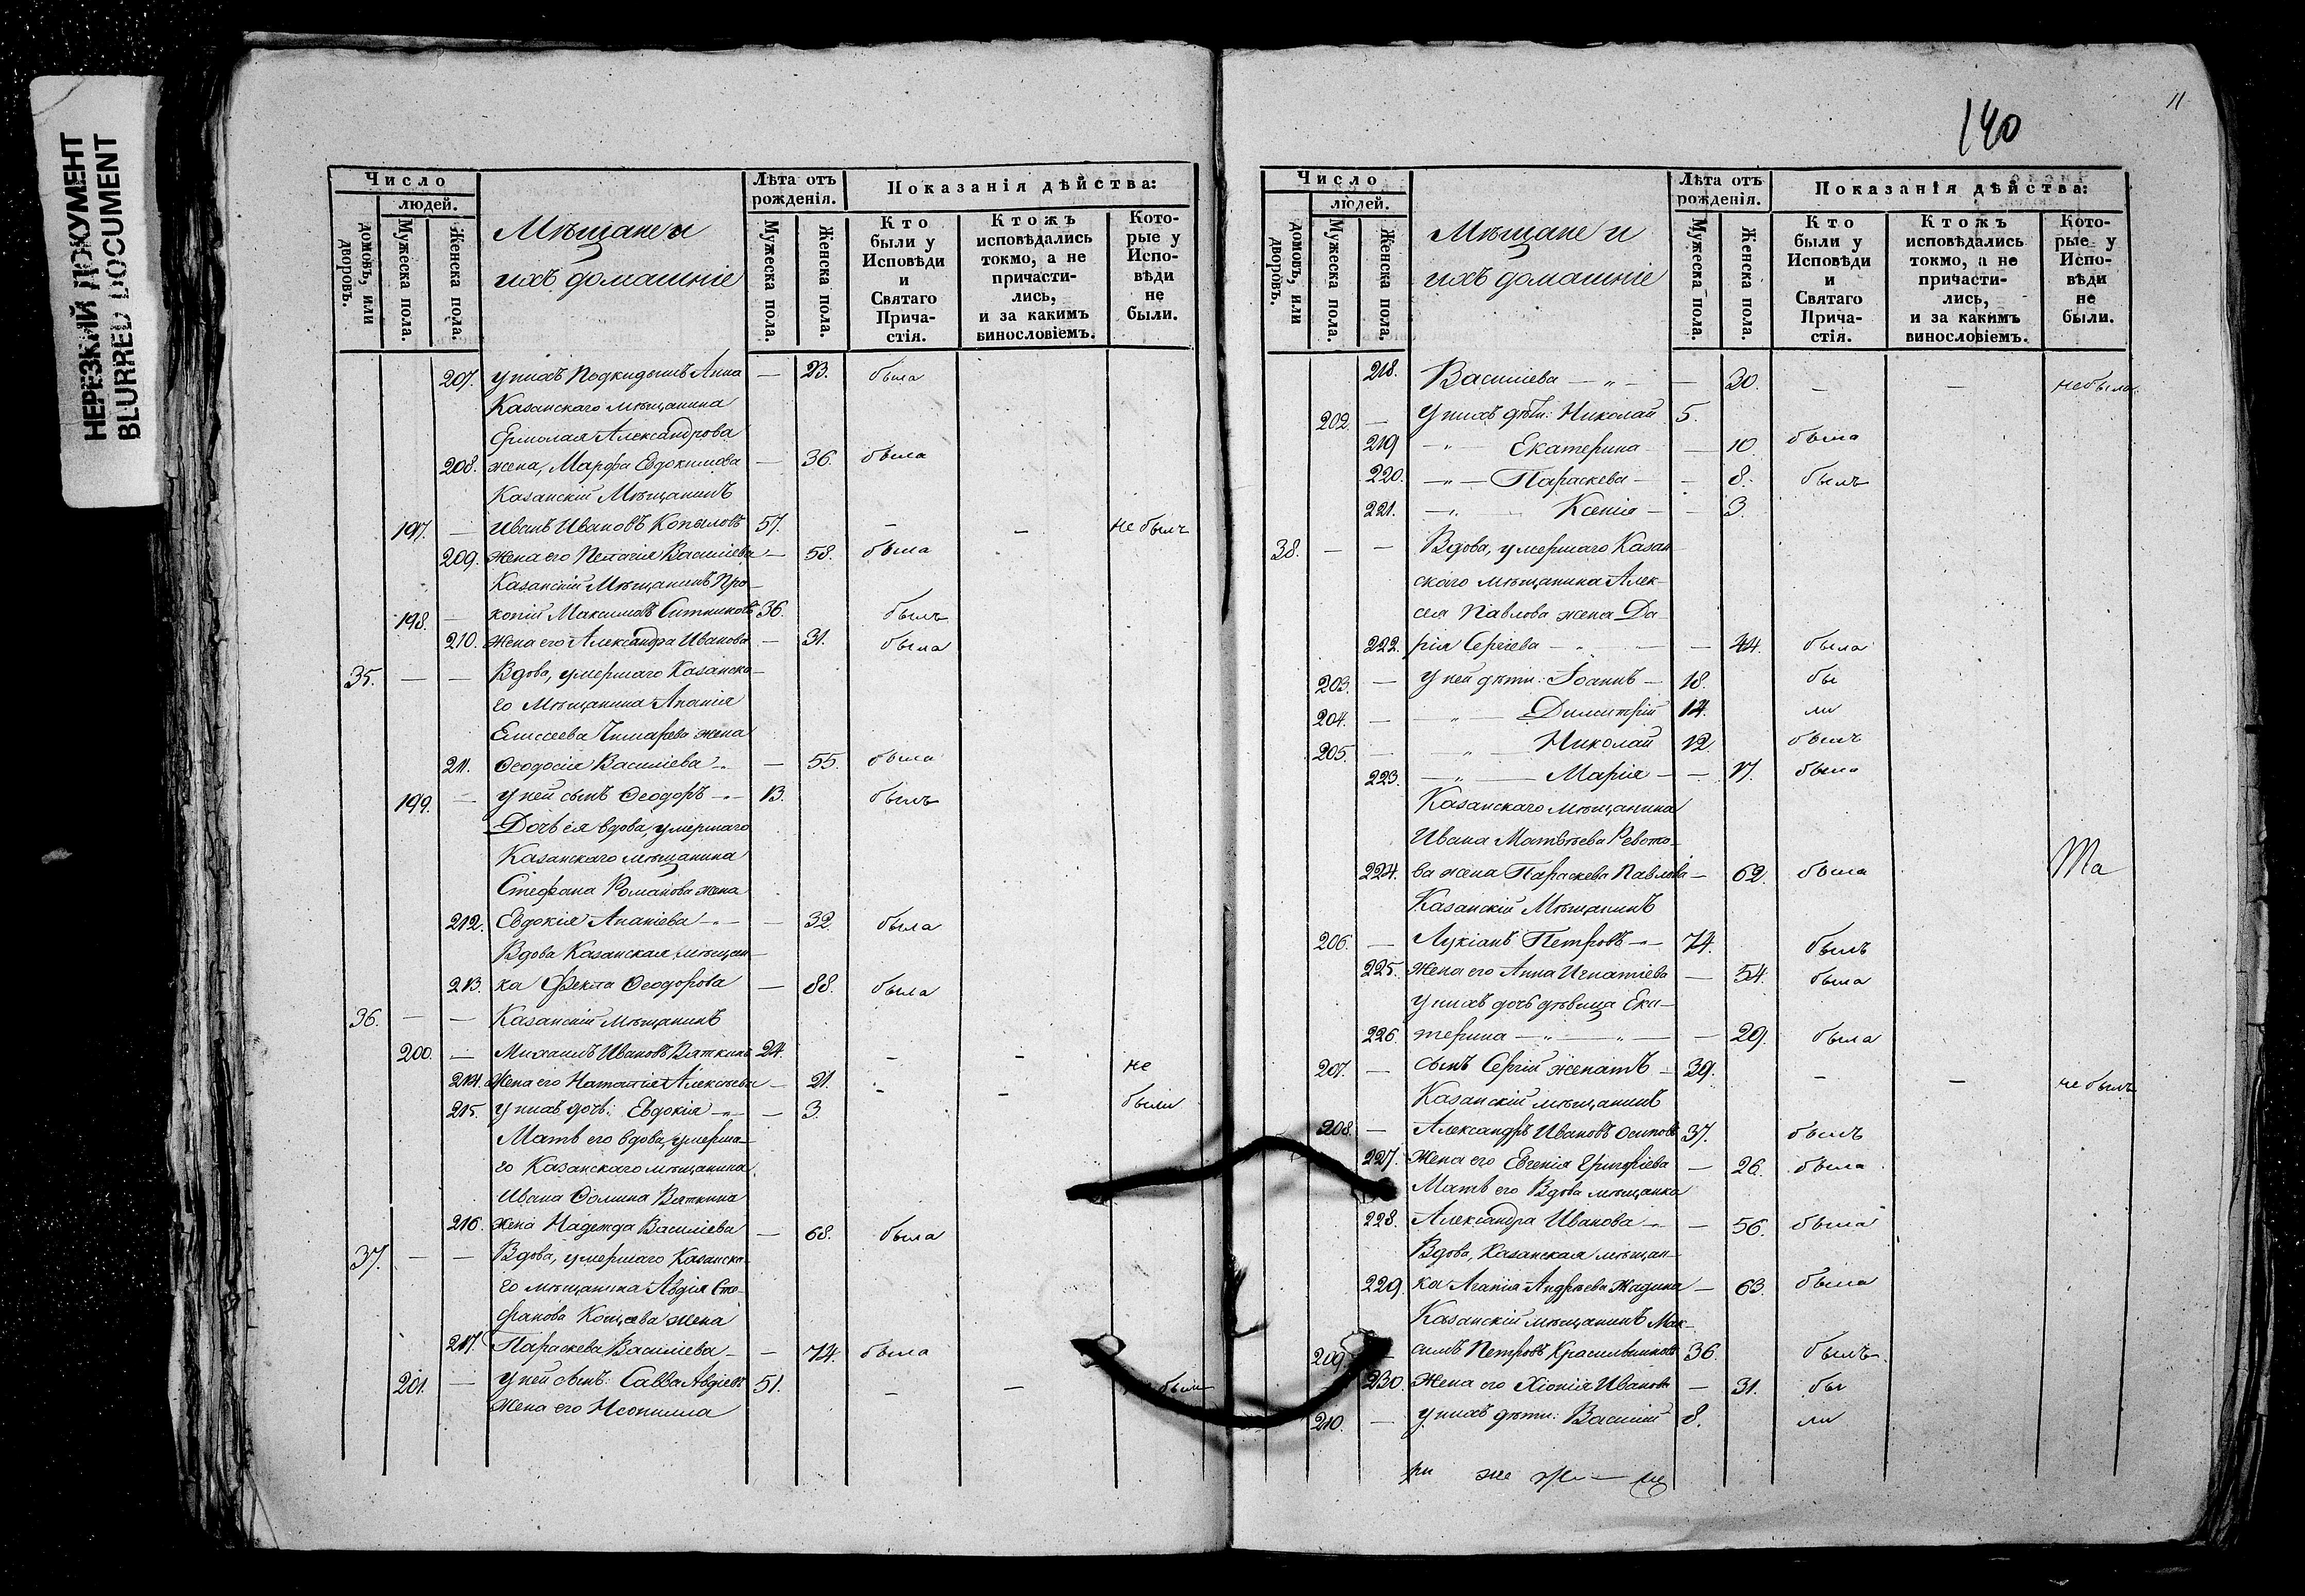 НЕРЕЗКИЙ ДОКУМЕНТ
BLURRED DOCUMENT
Число
людей.
домовъ, или дворовъ.
Мужеска пола.
Женска пола.
Мѣщане и
ихъ домашніе
Лѣта отъ рожденія.
Мужеска пола.
Женска пола.
Показанія дѣйства:
Кто были у Исповѣди и Святаго Прича-стія.
Ктожъ исповѣдались токмо, а не причасти-лись, и за какимъ винословіемъ.
Кото-рые у Испо-вѣди не были.
207. у нихъ Подкидышъ Анна — 23. была
Казанскаго мѣщанина
Ермолая Александрова
208. жена, Марфа Евдокимова — 36. была
Казанскій Мѣщанинъ
197. — Иванъ Ивановъ Копыловъ 57. — — не былъ
209. Жена его Пелагія Васильева — 58. была
Казанскій Мѣщанинъ Про-
198. — копій Максимовъ Ситниковъ 36. былъ
210. Жена его Александра Иванова — 31. была
35. — — Вдова, умершаго Казанска-
го Мѣщанина Ананія
Елисеева жена
211. Ѳеодосія Васильева — 55. была
199. — у ней сынъ Ѳеодоръ 13. былъ
Дочь ея вдова, умершаго
Казанскаго мѣщанина
Стефана Романова жена
212. Евдокія Ананіева — 32. была
Вдова Казанская мѣщан-
213. ка Фекла Ѳеодорова — 88. была
36. — — Казанскій Мѣщанинъ
200. — Михаилъ Ивановъ Вяткинъ 24. — — не
214. Жена его Наталія Алексѣева — 21. — —
215. у нихъ дочь: Евдокія — 3. были
Мать его вдова, умерша-
го Казанскаго мѣщанина
Ивана Ѳомина Вяткина
216. жена Надежда Васильева — 68. была
37. — — Вдова, умершаго Казанска-
го мѣщанина Авдія Сте-
фанова жена
217. Параскева Васильева — 74. была
201. — у ней сынъ: Савва Авдіевъ 51. — —
Жена его Неонилла
140
11
Число
людей.
домовъ, или дворовъ.
Мужеска пола.
Женска пола.
Мѣщане и
ихъ домашніе
Лѣта отъ рожденія.
Мужеска пола.
Женска пола.
Показанія дѣйства:
Кто были у Исповѣди и Святаго Прича-стія.
Ктожъ исповѣдались токмо, а не причасти-лись, и за какимъ винословіемъ.
Кото-рые у Испо-вѣди не были.
218. Васильева — „ — — 30. — — не была
202. — У нихъ дѣти: Николай 5.
219 — „ — Екатерина — 10. была
220. — „ — Параскева — 8. былъ
221. — „ — Ксенія — 3.
38. — — Вдова, умершаго Казан-
скаго мѣщанина Алек-
сея Павлова жена Да-
222. рія Сергіева — 44. была
203. — У ней дѣти: Іоаннъ — 18. бы
204. — „ — Димитрій 14. ли
205. — „ — Николай 12. былъ
223. — „ — Марія — 17. была
Казанскаго мѣщанина
Ивана Матвѣева
224. ва жена Параскева Павлова — 62. была
Казанскій Мѣщанинъ
206. — Лукіанъ Петровъ 74. былъ
225. Жена его Анна Игнатіева — 54. была
у нихъ дочь дѣвица Ека-
226. терина — „ — 29. была
207. — сынъ Сергій женатъ — 39. — — не былъ
Казанскій мѣщанинъ
208. — Александръ Ивановъ Осиповъ 37. былъ
227. Жена его Евгенія Григоріева — 26. была
Мать его Вдова мѣщанка
228. Александра Иванова — 56. была
Вдова, Казанская мѣщан-
229. ка Агапія Андреева Жадина — 63. была
Казанскій мѣщанинъ Мак-
209. — симъ Петровъ Красильниковъ 36. былъ
230. Жена его Хіонія Иванова — 31. бы
210. — у нихъ дѣти: Василій 8. ли